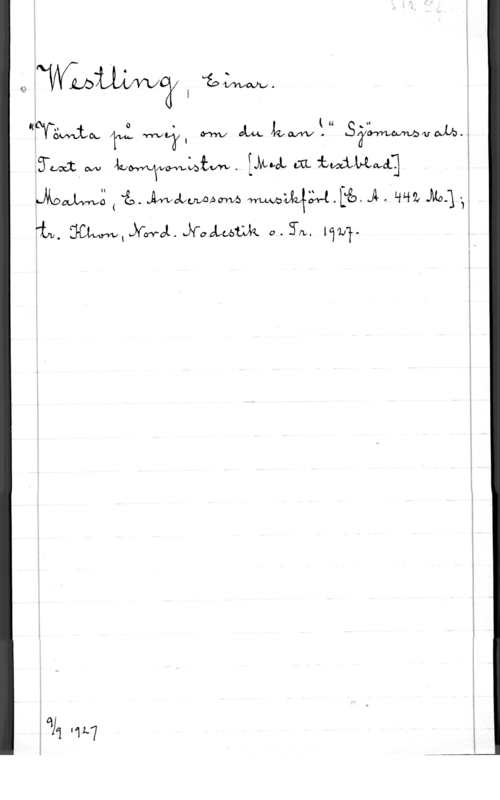 Westling, Einar.
"Vänta på mej, om du kan!" Sjömansvals.
Text av komponisten. [Med ett textblad.]
Malmö, E. Anderssons musikförl. [E. A. 442 Mo.];
tr. Khvn, Nord. Nodestik o. Tr. 1927.
9/9 1927